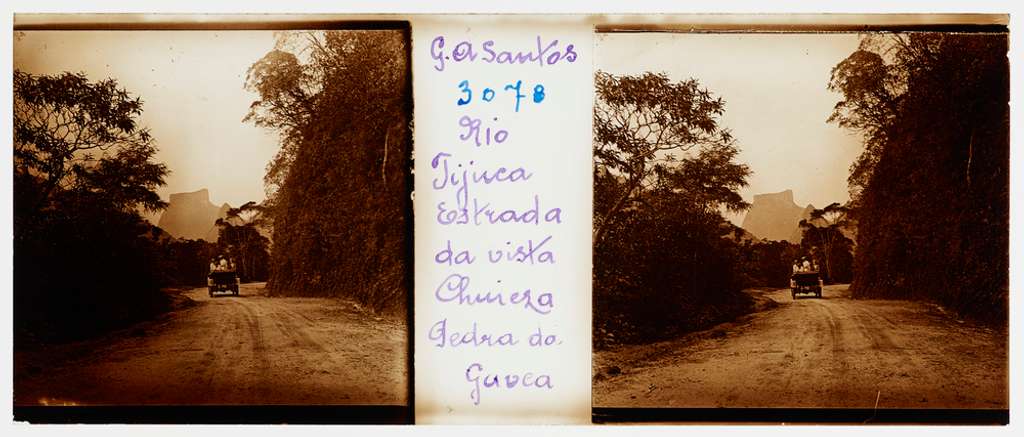 G. A Santos
3078
Rio
Tijuca
Estrada
da vista
Chineza
Pedra da
Guvea